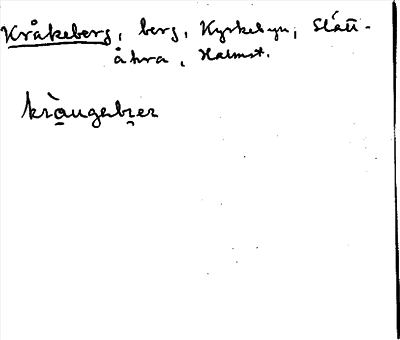 Kråkeberg, berg, Kyrkebyn, Slätt-
åkra, Halmst.
kràu̯gabær